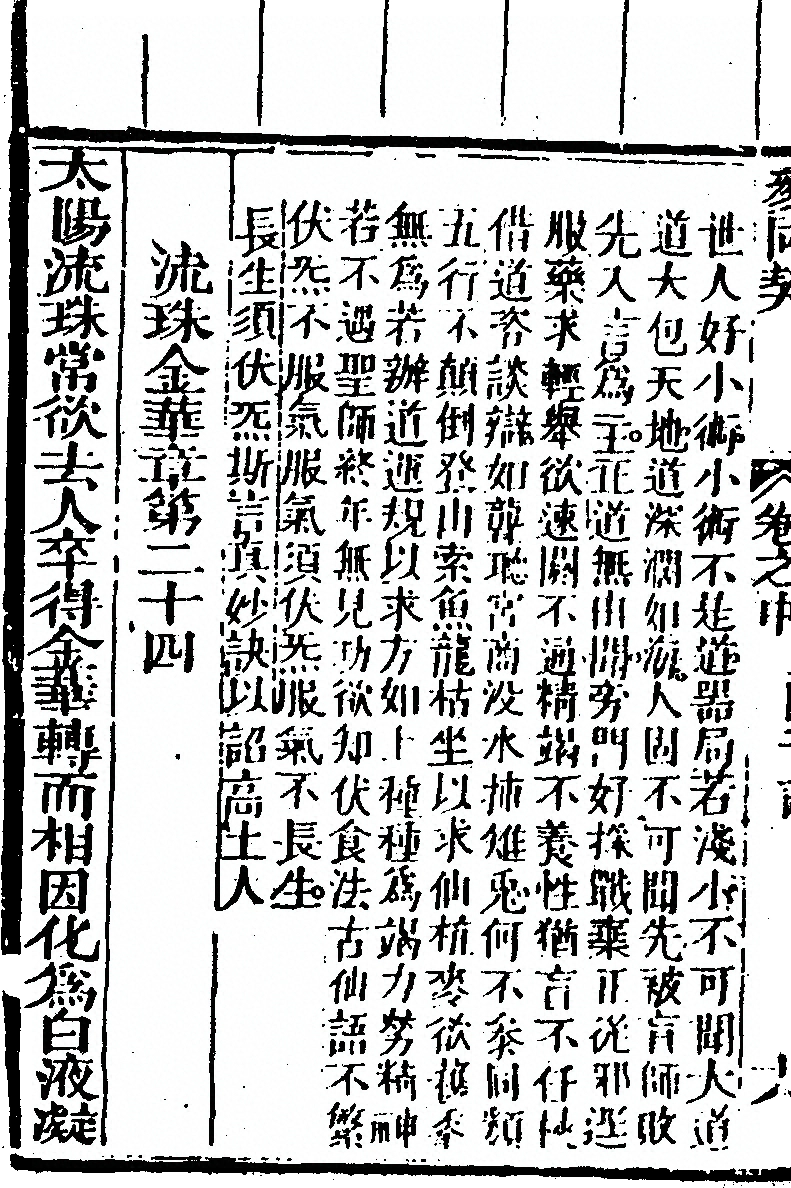 參同契 卷之中
世人好小術小術不是道器局若淺小不可聞大道
道大包天地道深濶如海人固不可聞先被盲師敗
先入言爲主正道無由開旁門好採戰棄正從邪逕
服藥求輕舉欲速關不通精竭不養性猶言不任
借道吝談辯如聾聽宮商没水捕雉兎何不叅同類
五行不顛倒登山索魚龍枯坐以求仙植麥欲穫黍
無爲若辦道運規以求方如上種種爲竭力勞精神
若不遇聖師終年無見功欲知伏食法古仙語不繁
伏炁不服氣服氣須伏炁服氣不長生
長生須伏炁斯言真妙訣以詔高士人
流珠金華章第二十四
太陽流珠常欲去人卒得金華轉而相因化爲白液凝